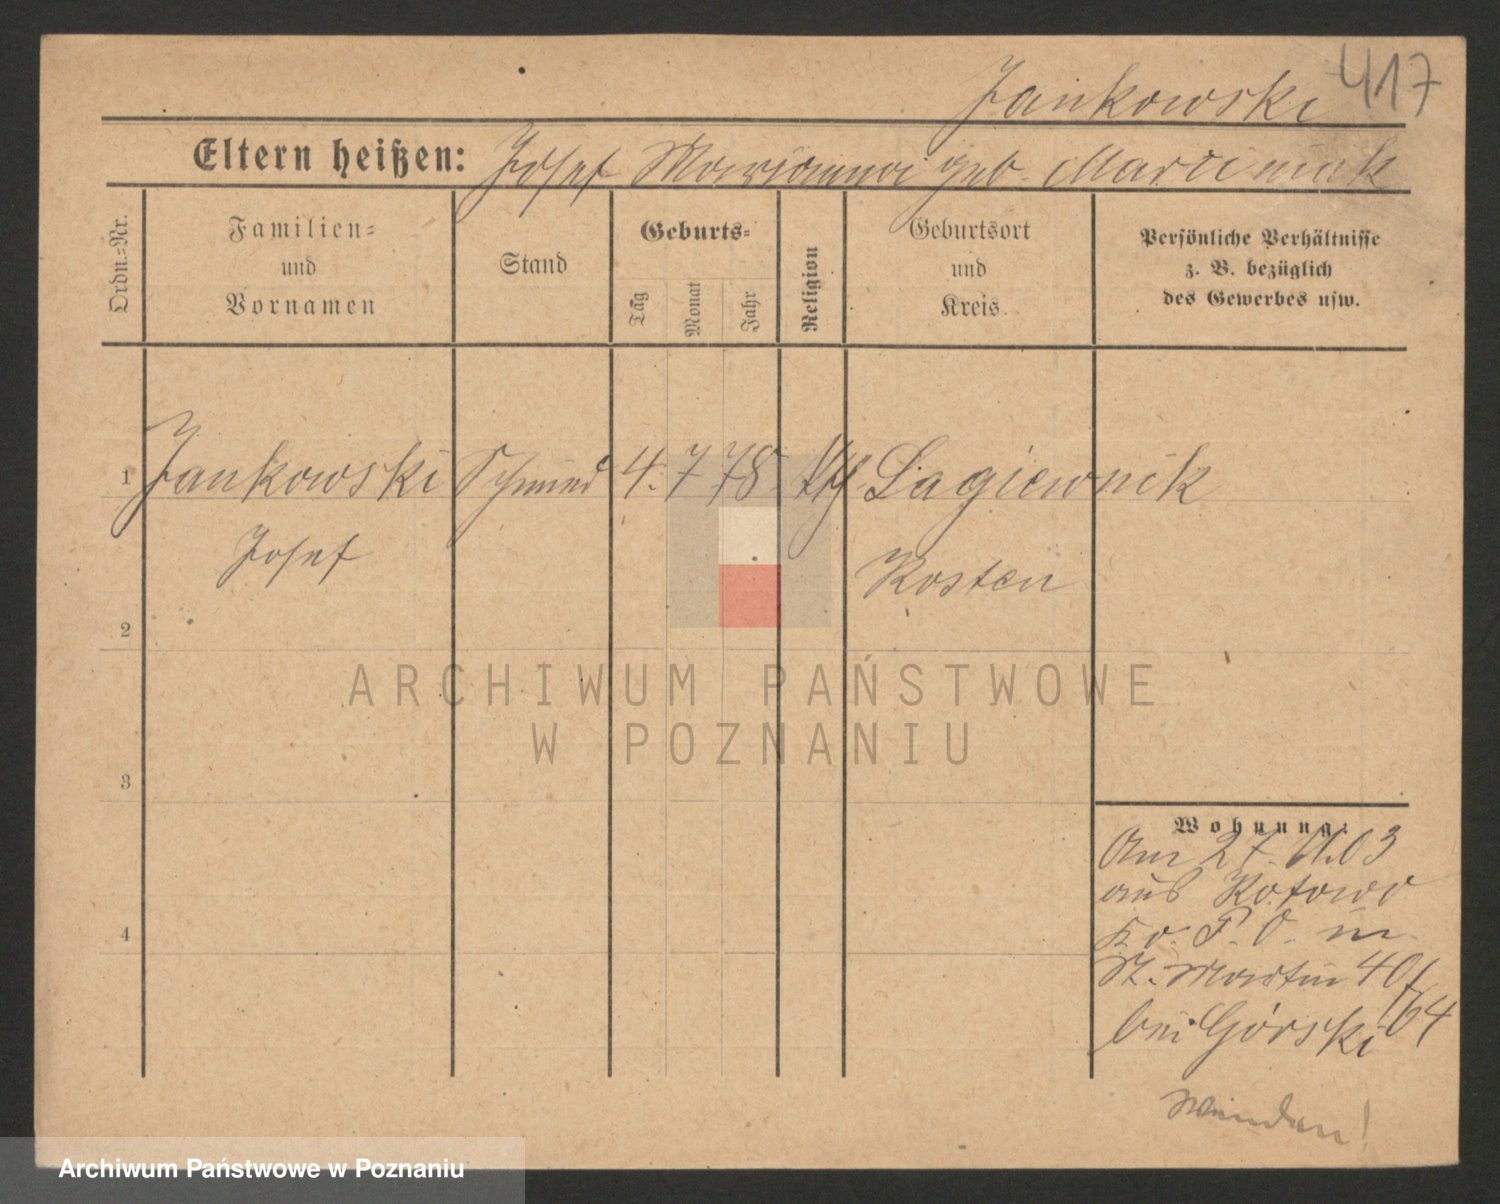 417
Jankowski
Eltern heißen: Josef Marianna geb. Marciniak
Ordn.-Nr.
Familien-
und
Vornamen
Stand
Geburts-
Tag
Monat
Jahr
Religion
Geburtsort
und
Kreis
Persönliche Verhältnisse
z. B. bezüglich
des Gewerbes usw.
1 Jankowski Schmied 4. 7 78. kth Lagiewnik
Josef Kosten
2
3
4
Wohnung:
Am 27. 11. 03
aus Kotowo
Kr. P. O. in
St. Martin 40/
bei Górski 64
Wenden!
ARCHIWUM PAŃSTWOWE
W POZNANIU
Archiwum Państwowe w Poznaniu